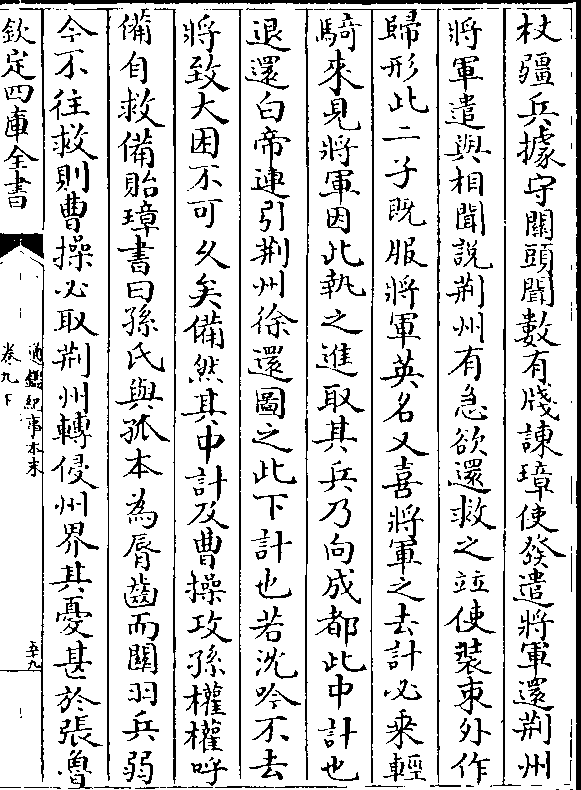 杖彊兵據守關頭聞數有牋諫璋使發遣將軍還荆州
將軍遣與相聞說荆州有急欲還救之並使裝束外作
歸形此二子既服將軍英名又喜將軍之去計必乘輕
騎來見將軍因此執之進取其兵乃向成都此中計也
退還白帝連引荆州徐還圖之此下計也若沈吟不去
將致大困不可久矣備然其中計及曹操攻孫權權呼
備自救備貽璋書曰孫氏與孤本為脣齒而關羽兵弱
今不往救則曹操必取荆州轉侵州界其憂甚於張魯
欽定四庫全書
通鑑紀事本末
卷九下
五九